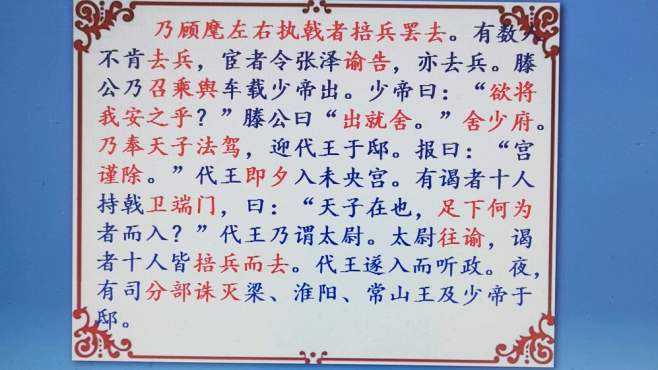 乃顾麾左右执戟者掊兵罢去。有数人
不肯去兵，宦者令张泽谕告，亦去兵。滕
公乃召乘舆车载少帝出。少帝曰：“欲将
我安之乎？”滕公曰“出就舍。”舍少府。
乃奉天子法驾，迎代王于邸。报曰：“宫
谨除。”代王即夕入未央宫。有谒者十人
持戟卫端门，曰：“天子在也，足下何为
者而入？”代王乃谓太尉。太尉往谕，谒
者十人皆掊兵而去。代王遂入而听政。夜，
有司分部诛灭梁、淮阳、常山王及少帝于
邸。